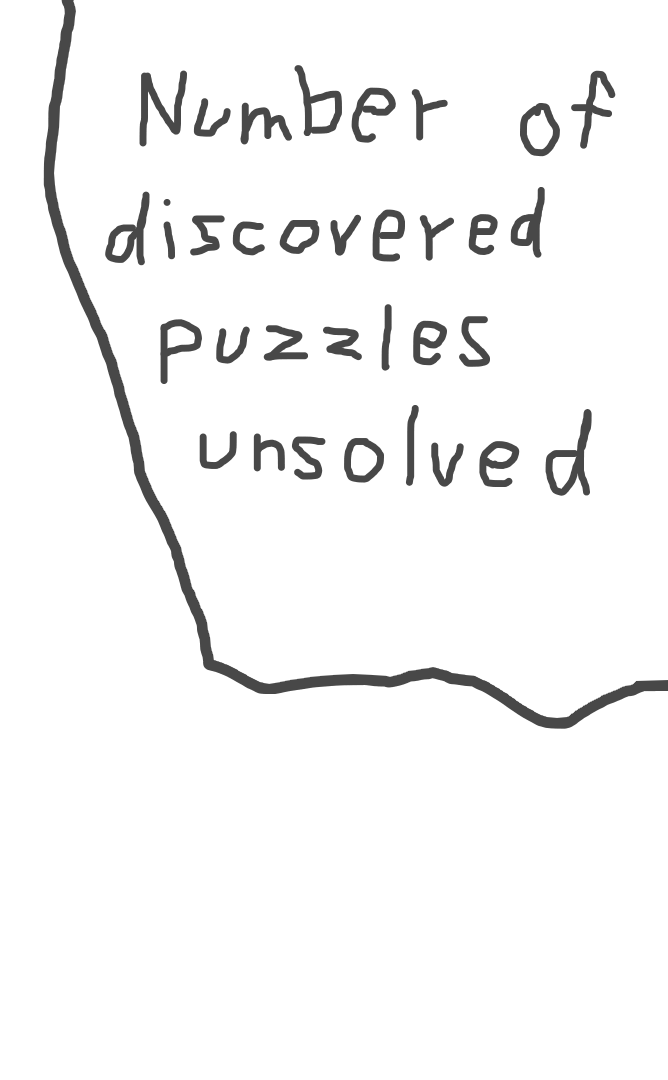 Number of
discovered
puzzles
unsolved